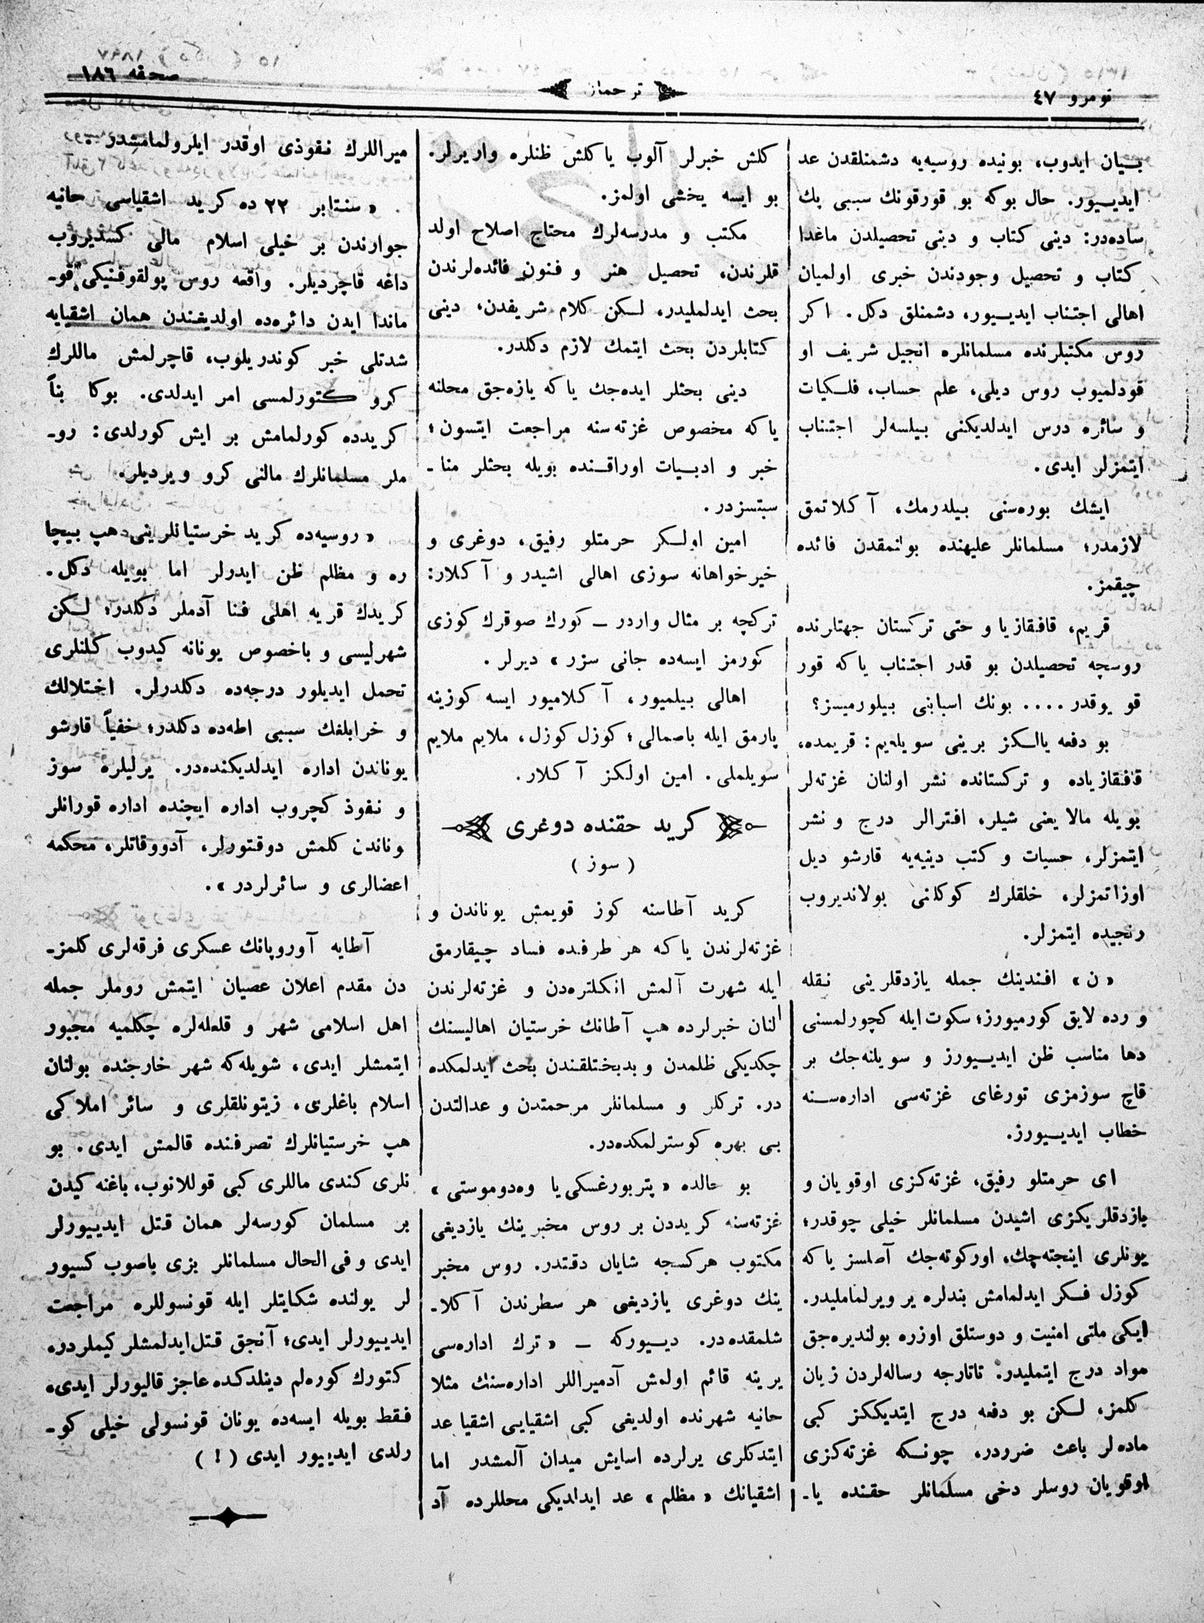 نومرو ٤٧
ترجمان
صحیفه ١٨٦
بـیان ایدوب، بونیده روسیه‌یه دشمنلقدن عد
ایدیـیور. حال بوکه بو قورقونك سببی پك
ساده‌در: دینی کتاب و دینی تحصیلدن ماعدا
کتاب و تحصیل وجودندن خبری اولمیان
اهالی اجتناب ایدیـیور، دشمنلق دکل. اکر
روس مکتبلرنده مسلمانلره انجیل شریف او
قودلمیوب روس دیلی، علم حساب، فلـکیات
و سائره درس ایدلدیکنی بیلسه‌لر اجتناب
ایتمزلر ایدی.
ایشك بوره‌سنی بیلدرمك، آکلاتمق
لازمدر؛ مسلمانلر علیهنده بولنمقدن فائده
چیقمز.
قریم، قافقازیا و حتی ترکستان جهتلرنده
روسچه تحصیلدن بو قدر اجتناب یاکه قور
قو یوقدر.... بونك اسبابنی بیلورمیسز؟
بو دفعه یالـکز برینی سویله‌یم: قریمده،
قافقازیاده و ترکستانده نشر اولنان غزته‌لر
بویله مالا یعنی شیلر، افترالر درج و نشر
ایتمزلر، حسیات و کتب دینیه‌یه قارشو دیل
اوزاتمزلر، خلقلرك کوکلنی بولاندیروب
رنجیده ایتمزلر.
«ن» افندینك جمله یازدقلرینی نقله
و رده لایق کورمیورز؛ سکوت ایله کچورلمسنی
دها مناسب ظن ایدیـیورز و سویلنه‌جك بر
قاچ سوزمزی تورغای غزته‌سی اداره‌سـنه
خطاب ایدیـیورز.
ای حرمتلو رفیق، غزته‌کزی اوقویان و
یازدقلریکزی اشیدن مسلمانلر خیلی چوقدر؛
بونلری اینجته‌چك، اورکوته‌جك آصلسز یاکه
کوزل فـکر ایدلمامش بندلره یر ویرلمامليدر.
ایکی ملتی امنیت و دوستلق اوزره بولندیره‌جق
مواد درج ایتملیدر. تاتارجه رساله‌لردن زیان
کلمز، لـکن بو دفعه درج ایتدیککز کبی
ماده‌لر باعث ضرردر، چونـکه غزته‌کزی
اوقویان روسلر دخی مسلمانلر حقنده یا۔
کلش خبرلر آلوب یاکلش ظنلره واریرلر.
بو ایسه یخشی اولمز.
مکتب و مدرسه‌لرك محتاج اصلاح اولد
قلرندن، تحصیل هنر و فنون فائده‌لرندن
بحث ایدلملیدر، لـکن کلام شریفدن، دینی
کتابلردن بحث ایتمك لازم دکلدر.
دینی بحثلر ایده‌جك یاکه یازه‌جق محلنه
یاکه مخصوص غزته‌سنه مراجعت ایتسون؛
خبر و ادبـیات اوراقـنده بویله بحثلر منا۔
سبتسزدر.
امین اولـکز حرمتلو رفیق، دوغری و
خیرخواهانه سوزی اهالی اشیدر و آکلار:
ترکچه بر مثال واردر – کورك صوقرك کوزی
کورمز ایسه‌ده جانی سزر» دیرلر.
اهالی بیلمیور، آکلامیور ایسه کوزینه
پارمق ایله باصمالی؛ کوزل کوزل، ملایم ملایم
سویلملی. امین اولکز آکلار.
کرید حقنده دوغری
(سوز)
کرید آطاسنه کوز قویمش یوناندن و
غزته‌لرندن یاکه هر طرفده فساد چیقارمق
ایله شهرت آلمش انکلتره‌دن و غزته‌لرندن
النان خبرلرده هپ آطانك خرستیان اهالیسنك
چکدیکی ظلمدن و بدبختلقندن بحث ایدلمکده
در. ترکلر و مسلمانلر مرحمتدن و عدالتدن
بی بهره کوسترلمکده‌در.
بو حالده «پتربورغسکی یا وه‌دوموستی»
غزته‌سنه کریددن بر روس مخبرینك یازدیغی
مکتوب هرکسجه شایان دقتدر. روس مخبر
ینك دوغری یازدیغی هر سطرندن آکلا۔
شلمقده‌در. دیـیورکه – «ترك اداره‌سی
یرینه قائم اولمش آدمیراللر اداره‌سنك مثلا
حانیه شهرنده اولدیغی کبی اشقیایی اشقیا عد
ایتدکلری یرلرده اسایش میدان آلمشدر اما
اشقیانك «مظلم» عد ایدلدیکی محللرده آد
میراللرك نفوذی اوقدر ایلرولمامشدر.
«سنتابر ٢٢ ده کرید اشقیاسی حانیه
جوارندن بر خیلی اسلام مالی کسدیروب
داغه قاچردیلر. واقعه روس پولقوفنیکی قو۔
ماندا ایدن دائره‌ده اولدیغندن همان اشقیایه
شدتلی خبر کوندریلوب، قاچرلمش ماللرك
کرو کتورلمسی امر ایدلدی. بوکا بناً
کریدده کورلمامش بر ایش کورلدی: رو۔
ملر مسلمانلرك مالنی کرو ویردیلر.
«روسیه‌ده کرید خرستیانلرینی هپ بیچا
ره و مظلم ظن ایدرلر اما بویله دکل.
کریدك قریه اهلی فنا آدملر دکلدر؛ لـکن
شهرلیسی و باخصوص یونانه کیدوب کلنلری
تحمل ایدیلور درجه‌ده دکلدرلر. اختلالك
و خرابلغك سببی اطه‌ده دکلدر؛ خفیاً قارشو
یوناندن اداره ایدلدیکنده‌در. یرلیلره سوز
و نفوذ کچروب اداره ایچنده اداره قورانلر
وناندن کلمش دوقتورلر، آدووقاتلر، محکمه
اعضالری و سائرلردر».
آطایه آوروپانك عسکری فرقه‌لری کلمز۔
دن مقدم اعلان عصیان ایتمش روملر جمله
اهل اسلامی شهر و قلعه‌لره چکلمیه مجبور
ایتمشلر ایدی، شویله‌که شهر خارجنده بولنان
اسلام باغلری، زیتونلقلری و سائر املاکی
هپ خرستیانلرك تصرفنده قالمش ایدی. بو
نلری کندی ماللری کبی قوللانوب، باغنه کیدن
بر مسلمان کورسه‌لر همان قتل ایدیـیورلر
ایدی و فی الحال مسلمانلر بزی باصوب کسیور
لر یولنده شکایتلر ایله قونسوللره مراجعت
ایدیـیورلر ایدی؛ آنجق قتل ایدلمشلر کیملردر،
کتورك کوره‌لم دینلدکده عاجز قالیورلر ایدی،
فقط بویله ایسه‌ده یونان قونسولی خیلی کو۔
رلدی ایدیـیور ایدی (!)